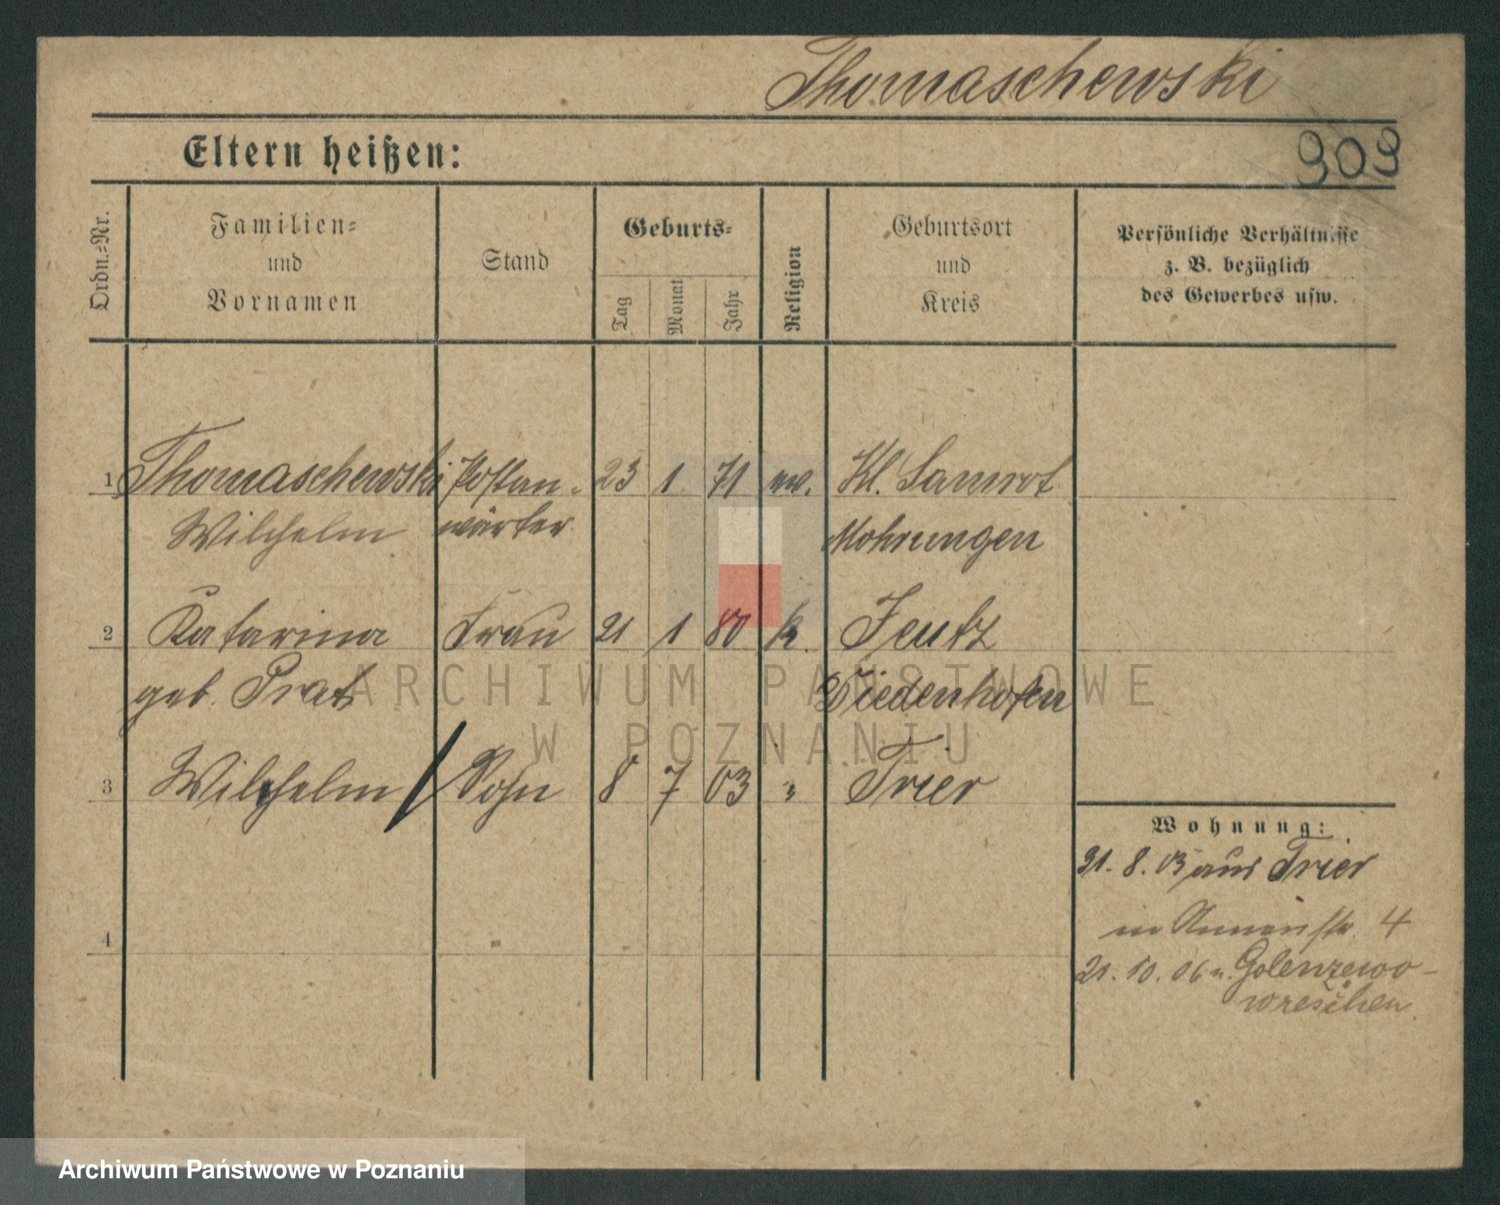 Thomaschewski
Eltern heißen:
909
Ordn.-Nr.
Familien-
und
Vornamen
Stand
Geburts-
Tag
Monat
Jahr
Religion
Geburtsort
und
Kreis
Persönliche Verhältnisse
z. B. bezüglich
des Gewerbes usw.
1 Thomaschewski Postan- 23 1 71 ev. Kl. Samrot
Wilhelm wärter Mohrungen
2 Katarina Frau 21 1 80 k. Jeutz
geb. Prat Diedenhofen
3 Wilhelm Sohn 8 7 03 " Trier
4
Wohnung:
31. 8. 03 aus Trier
in Annenstr. 4
21. 10. 06 n. Golenzewo-
wreschen
ARCHIWUM PAŃSTWOWE
W POZNANIU
Archiwum Państwowe w Poznaniu